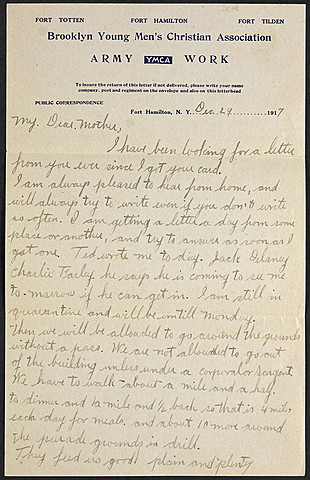 FORT TOTTEN FORT HAMILTON FORT TILDEN
Brooklyn Young Men's Christian Association
ARMY YMCA WORK
To insure the return of this letter if not delivered, please write your name
company, post and regiment on the envelope and also on this letterhead
PUBLIC CORRESPONDENCE
Fort Hamilton, N. Y. Dec. 29 1917
My Dear Mother,
I have been looking for a letter
from you ever since I got your card.
I am always pleased to hear from home, and
will always try to write even if you don't write
so often. I am getting a letter a day from some
place or another, and try to answer as soon as I
get one. Ted wrote me to day. Jack Delaney
Charlie he says he is coming to see me
to-morrow if he can get in. I am still in
quarantine and will be untill Monday.
Then we will be allouded to go around the grounds
without a pass. We are not allouded to go out
of the building unless under a corporal or sargent.
We have to walk about a mile and a half
to dinner and 1 a mile and 1/2 back so that is 4 miles
each day for meals. and about 10 more around
the parade grounds in drill.
They feed us good plain and plenty